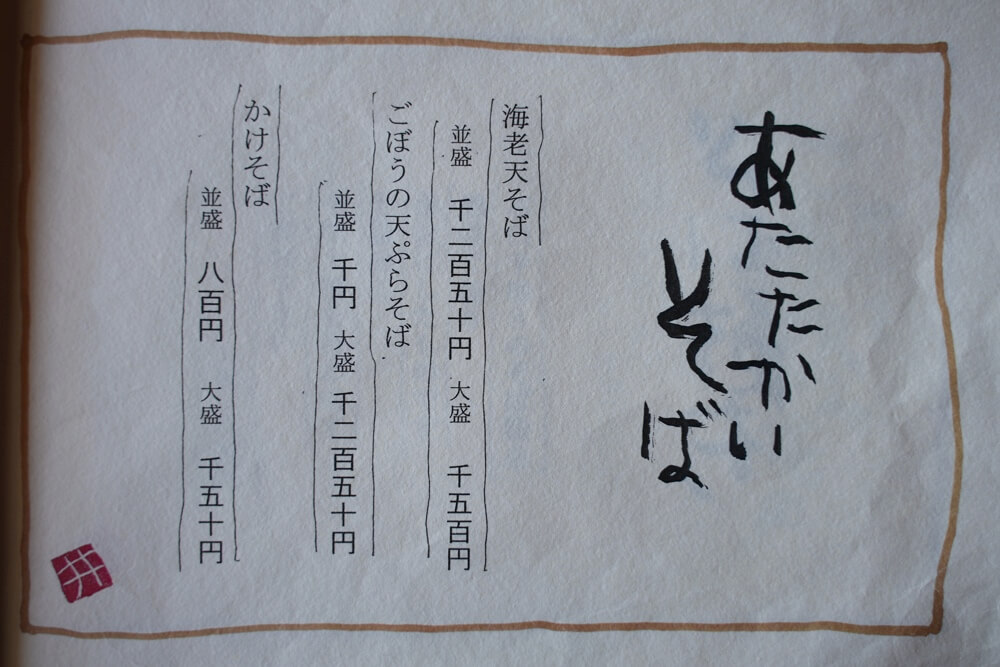 あたたかい
そば
海老天そば
並盛 千二百五十円 大盛 千五百円
ごぼうの天ぷらそば
並盛 千円 大盛 千二百五十円
かけそば
並盛 八百円 大盛 千五十円
井